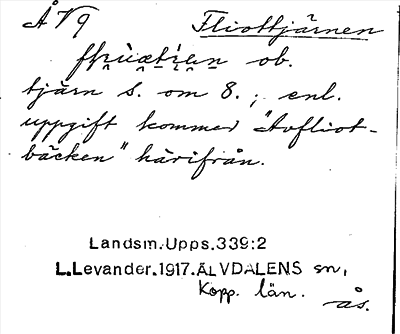 ÅV9 Fliottjärnen
ob.
tjärn S. om 8. ; enl.
uppgift kommer "Avfliot-
bäcken" härifrån.
Landsm. Upps. 339:2
L. Levander. 1917. ÄLVDALENS sn,
Kopp. län.
ås.